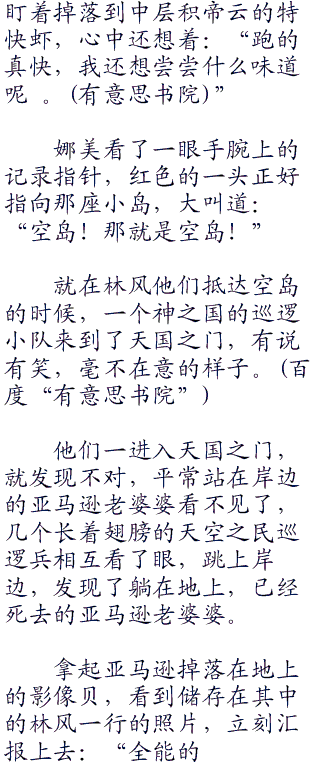 盯着掉落到中层积帝云的特
快虾，心中还想着：“跑的
真快，我还想尝尝什么味道
呢 。(有意思书院)”
娜美看了一眼手腕上的
记录指针，红色的一头正好
指向那座小岛，大叫道：
“空岛！那就是空岛！”
就在林风他们抵达空岛
的时候，一个神之国的巡逻
小队来到了天国之门，有说
有笑，毫不在意的样子。(百
度“有意思书院”)
他们一进入天国之门，
就发现不对，平常站在岸边
的亚马逊老婆婆看不见了，
几个长着翅膀的天空之民巡
逻兵相互看了眼，跳上岸
边，发现了躺在地上，已经
死去的亚马逊老婆婆。
拿起亚马逊掉落在地上
的影像贝，看到储存在其中
的林风一行的照片，立刻汇
报上去：“全能的